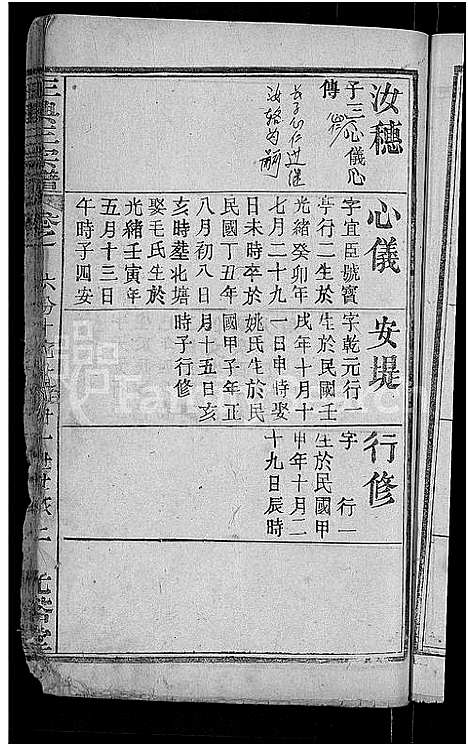 汝穗
子三心儀心
傳
長子心仁過繼
汝輅為嗣
心儀
字宜臣號賓
亭行二生於
光緒癸卯年
七月二十九
日未時卒於
民國丁丑年
八月初八日
亥時塟北塘
娶毛氏生於
光緒壬寅年
五月十三日
午時子四安
安堤
字乾元行一
生於民國壬
戌年十月十
一日申時娶
姚氏生於民
國甲子年正
月十五日亥
時子行修
行修
字 行一
生於民國甲
申年十月二
十九日辰時